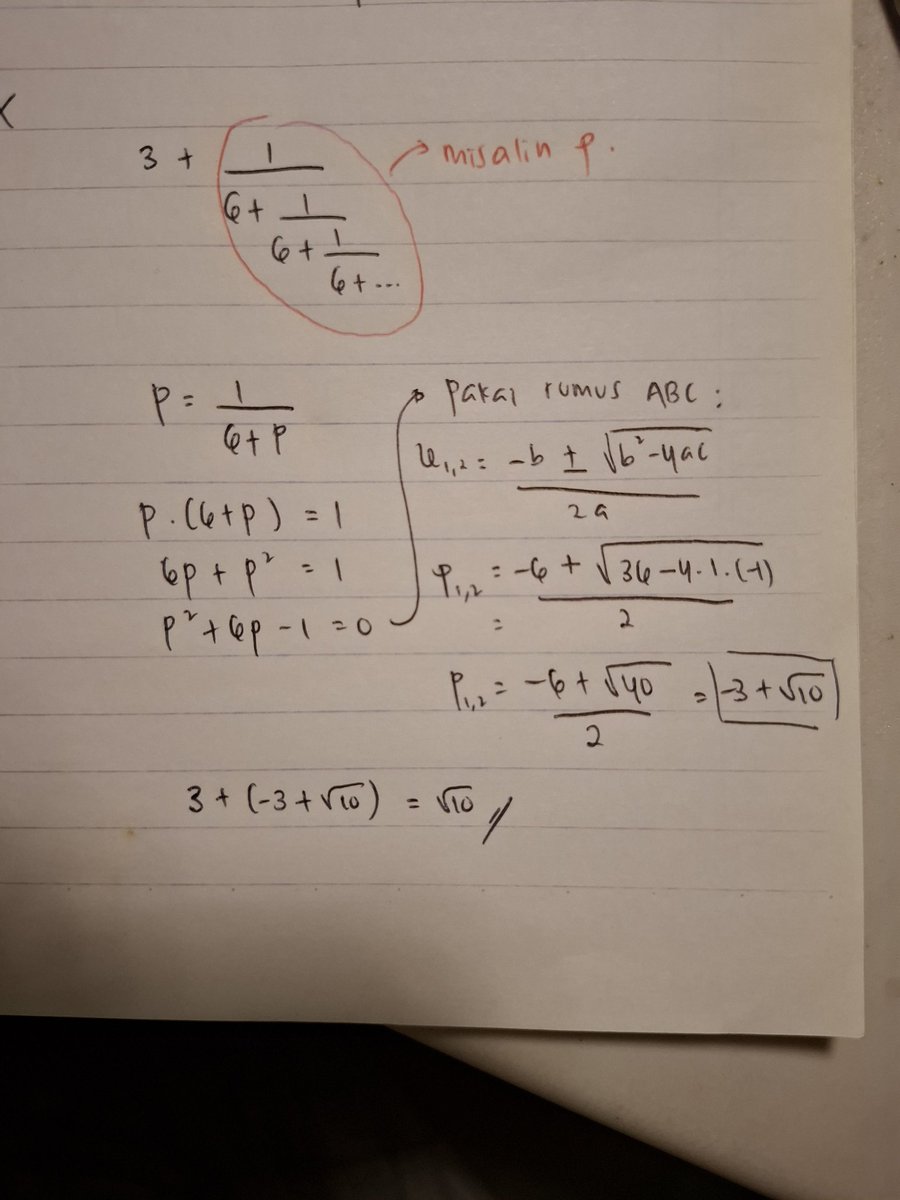 3 + 1 / 6 + 1 / 6 + 1 / 6 + ...
misalin p.
p = 1 / 6 + p
p . (6 + p) = 1
6p + p² = 1
p² + 6p - 1 = 0
pakai rumus ABC :
= -b ± √b² - 4ac / 2a
p1,2 = -6 + √36 - 4 . 1 . (-1) / 2
=
p1,2 = -6 + √40 / 2 = -3 + √10
3 + (-3 + √10) = √10 //